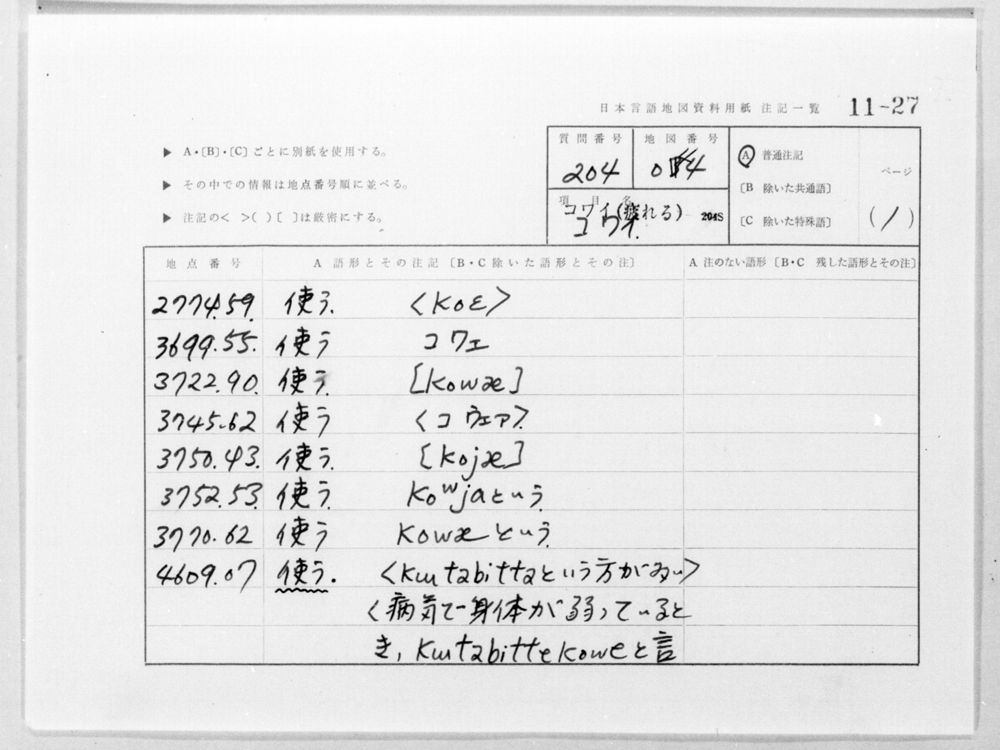 日本言語地図資料用紙 注記一覧 11-27
▶ A・〔B〕・〔C〕ごとに別紙を使用する。
▶ その中での情報は地点番号順に並べる。
▶ 注記の< >( )[ ]は厳密にする。
質問番号 地図番号
204
項目名
コワイ(疲れる) 204S
コワイ.
Ⓐ 普通注記
〔B 除いた共通語〕
〔C 除いた特殊語〕
ページ
(1)
地点番号 A 語形とその注記〔B・C 除いた語形とその注〕 A 注のない語形〔B・C 残した語形とその注〕
2774.59. 使う. <Koɛ>
3699.55. 使う コワェ
3722.90. 使う. [Kowæ]
3745.62 使う <コウェァ>
3750.43. 使う. [Kojæ]
3752.53. 使う. Koʷjaという.
3770.62 使う Kowæという.
4609.07 使う. <Kɯtabittaという方が多い>
<病気で身体が弱っていると
き, Kɯtabitte koweと言